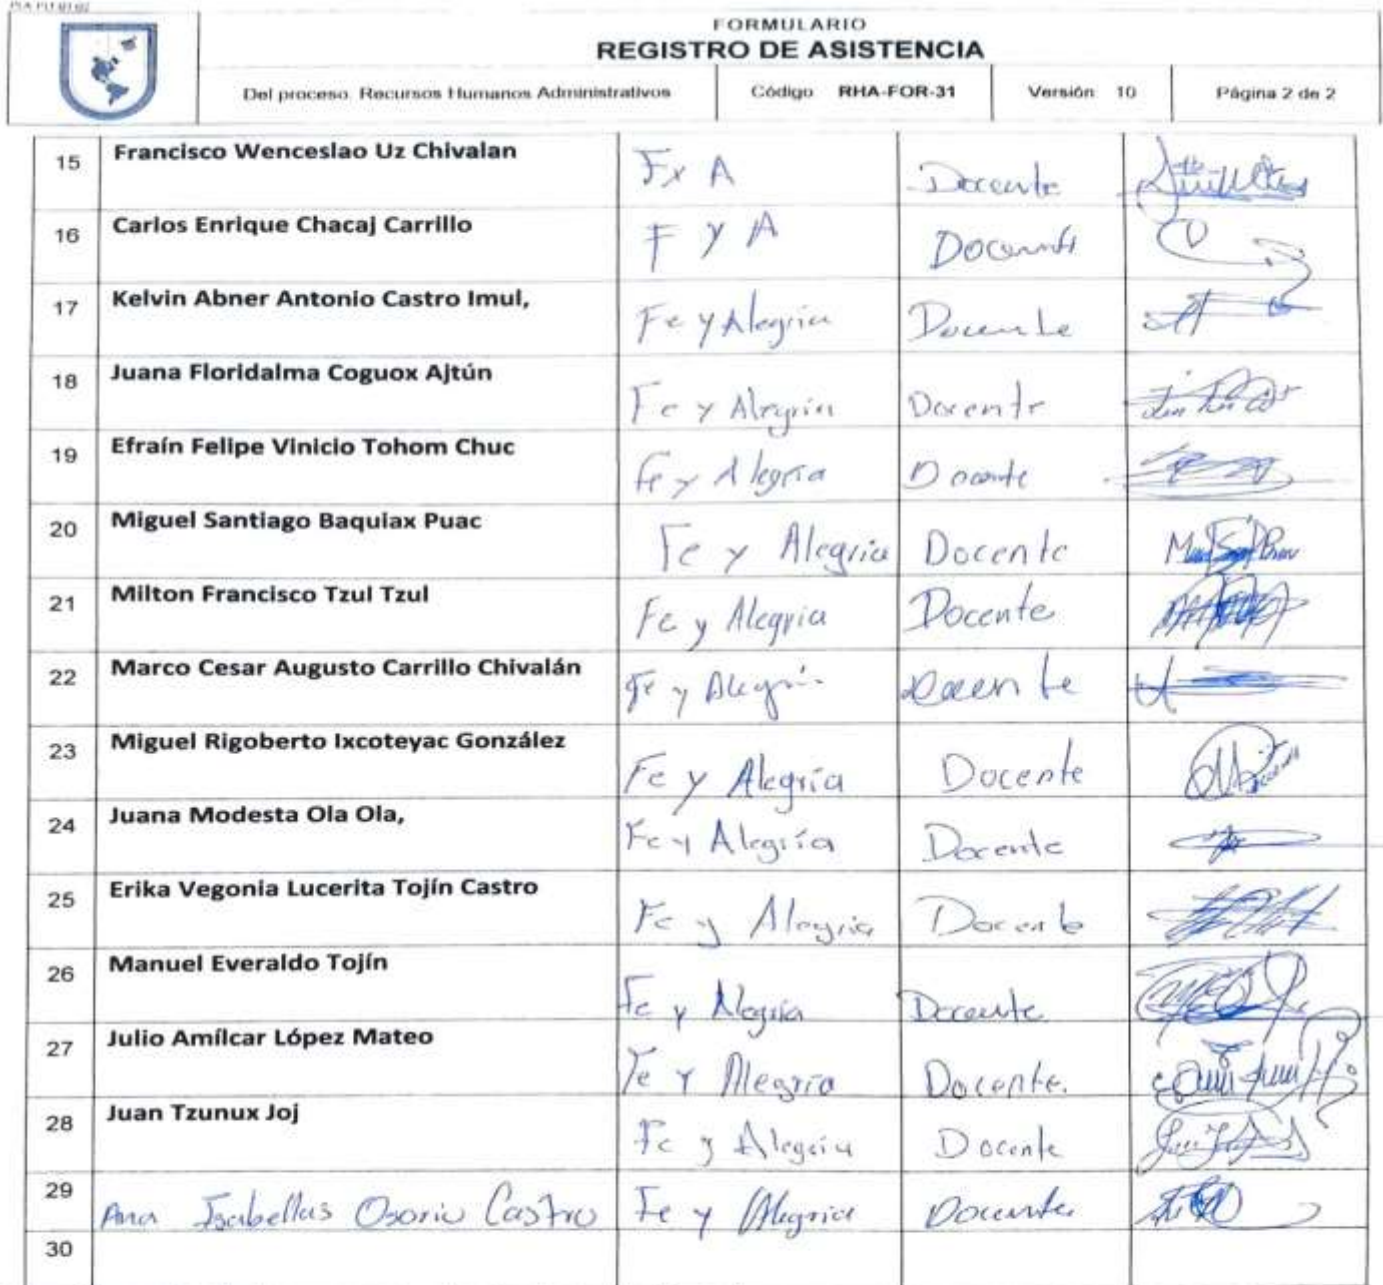 FORMULARIO
REGISTRO DE ASISTENCIA
Del proceso: Recursos Humanos Administrativos Código RHA-FOR-31 Versión 10 Página 2 de 2
15 Francisco Wenceslao Uz Chivalan F y A Docente
16 Carlos Enrique Chacaj Carrillo F y A Docente
17 Kelvin Abner Antonio Castro Imul, Fe y Alegria Docente
18 Juana Floridalma Coguox Ajtún Fe y Alegria Docente
19 Efraín Felipe Vinicio Tohom Chuc Fe y Alegria Docente
20 Miguel Santiago Baquiax Puac Fe y Alegria Docente
21 Milton Francisco Tzul Tzul Fe y Alegria Docente
22 Marco Cesar Augusto Carrillo Chivalán Fe y Alegria Docente
23 Miguel Rigoberto Ixcoteyac González Fe y Alegría Docente
24 Juana Modesta Ola Ola, Fe y Alegría Docente
25 Erika Vegonia Lucerita Tojín Castro Fe y Alegria Docente
26 Manuel Everaldo Tojín Fe y Alegria Docente
27 Julio Amílcar López Mateo Fe y Alegría Docente.
28 Juan Tzunux Joj Fe y Alegria Docente
29 Ana Isabellas Osorio Castro Fe y Alegria Docente
30